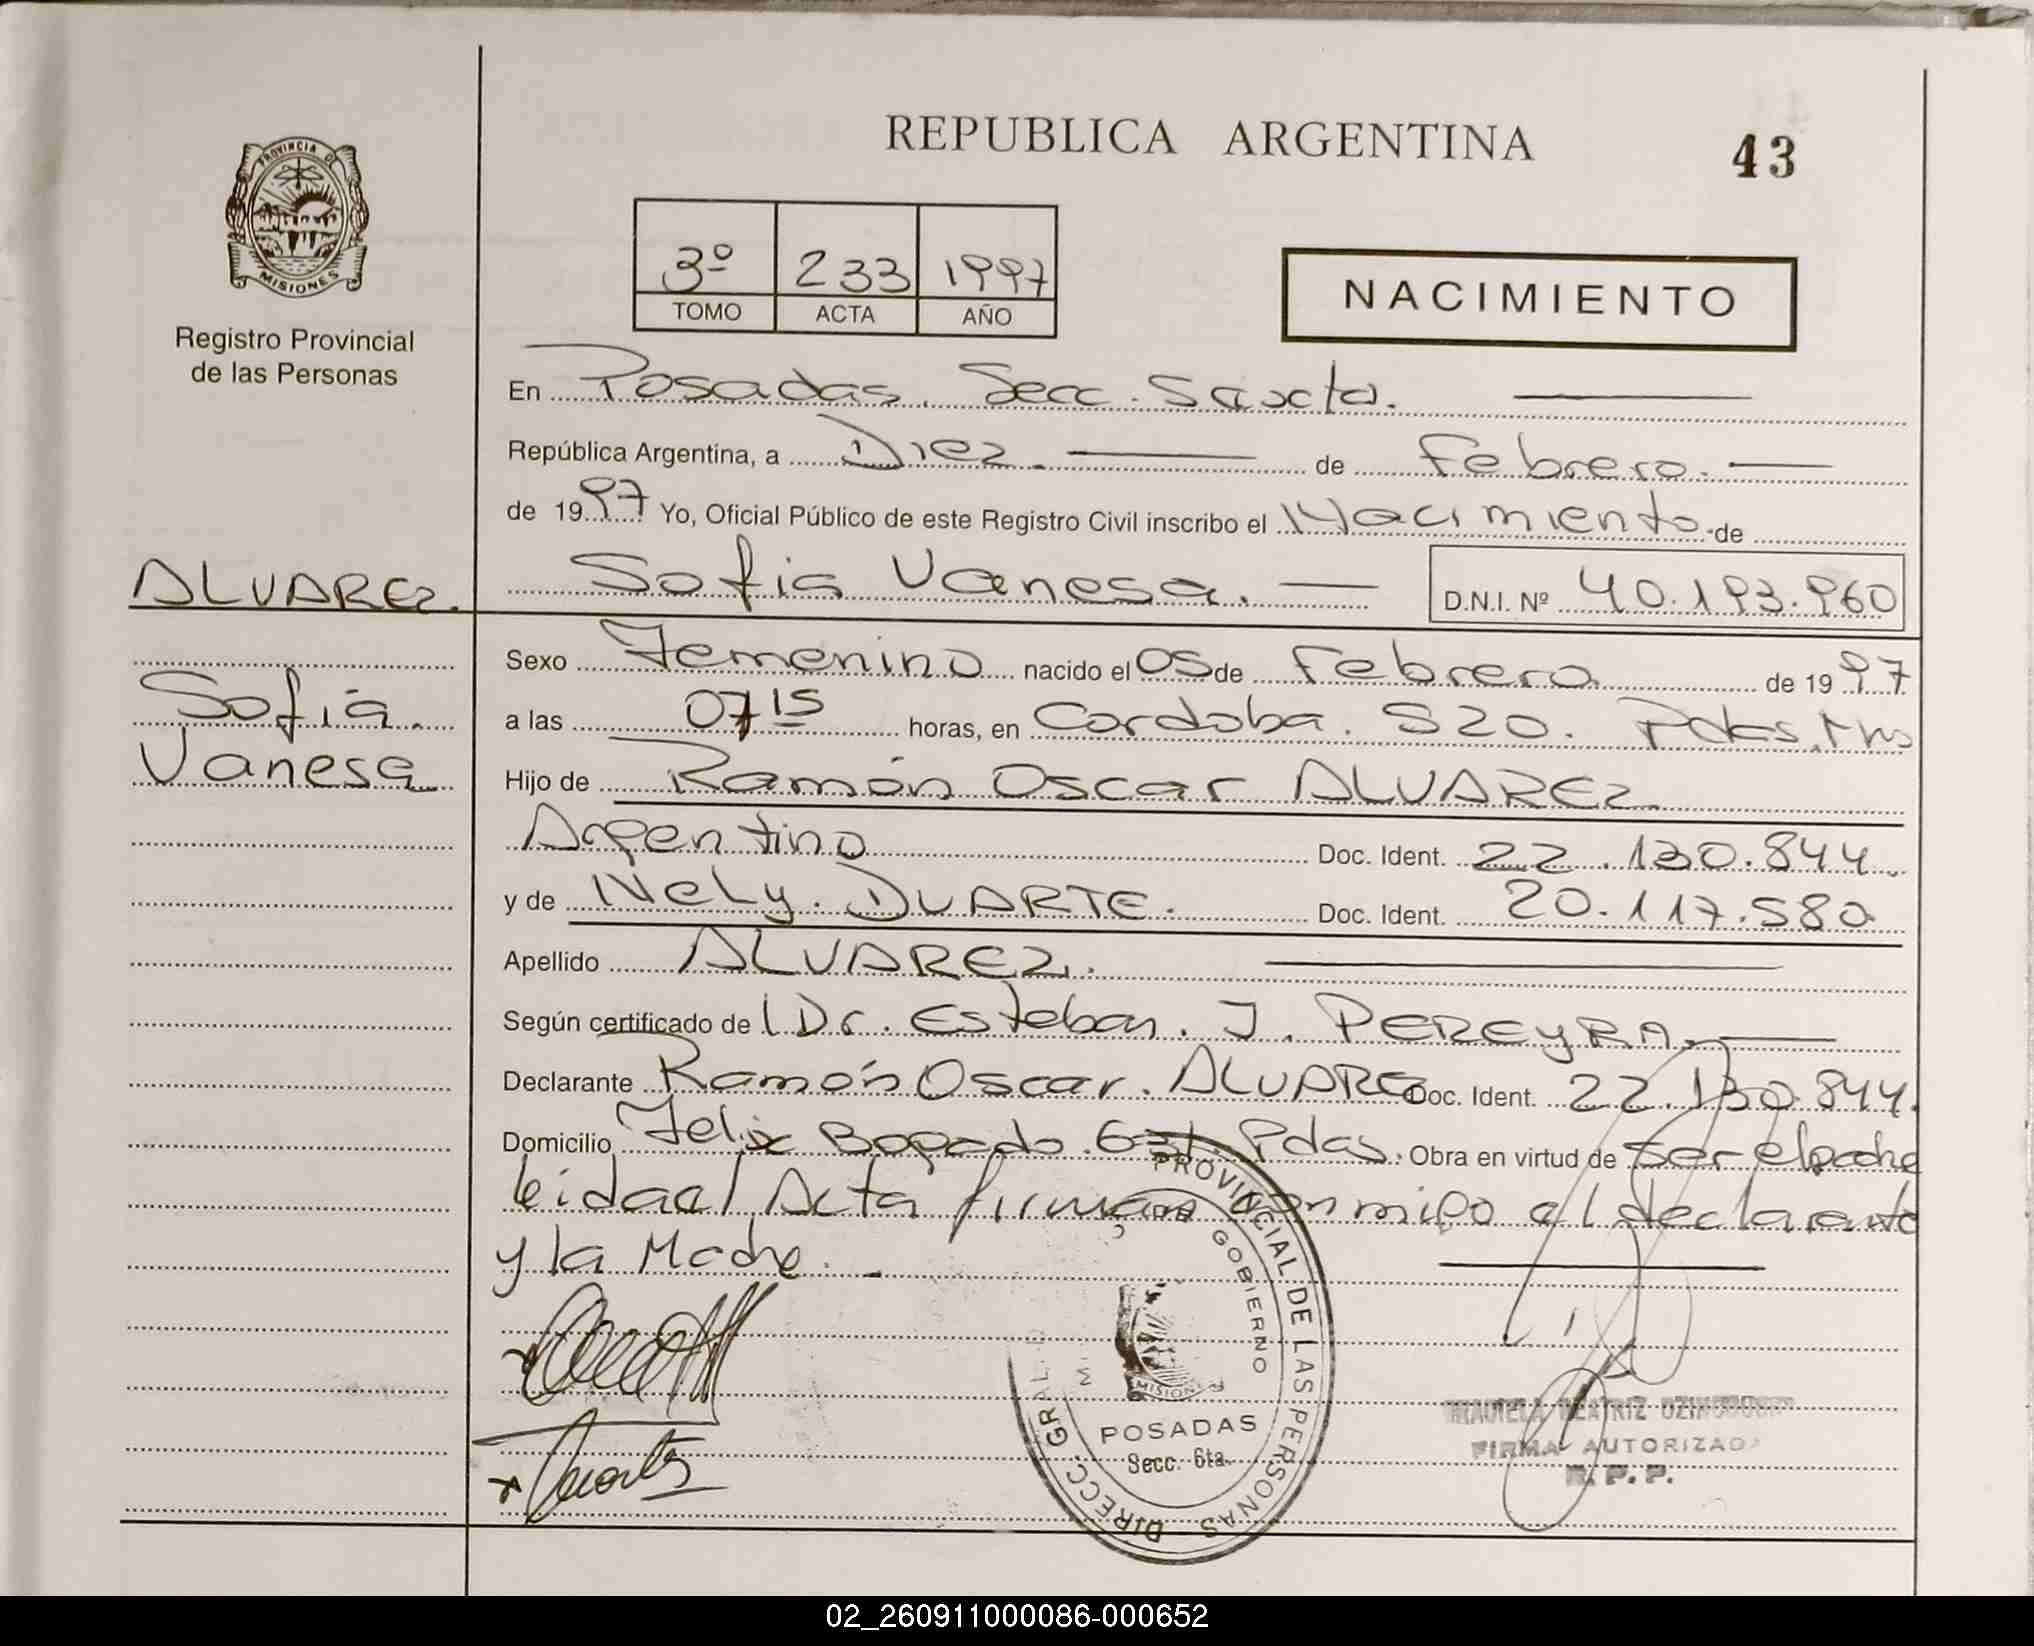 REPUBLICA ARGENTINA
43
PROVINCIA DE
MISIONES
Registro Provincial
de las Personas
3º 233 1997
TOMO ACTA AÑO
NACIMIENTO
En Posadas. Secc. Sexta.
República Argentina, a Diez. de Febrero.
de 1997 Yo, Oficial Público de este Registro Civil inscribo el Nacimiento de
ALVAREZ.
Sofia Vanesa. D.N.I. Nº 40.193.960
Sofia.
Vanesa
Sexo Femenino nacido el 05 de Febrero de 1997
a las 07 15 horas, en Cordoba. 520. Pdas.
Hijo de Ramón Oscar ALVAREZ.
Argentino Doc. Ident. 22.130.844.
y de Nely. DUARTE. Doc. Ident. 20.117.580
Apellido ALVAREZ.
Según certificado de Dr. Esteban. J. PEREYRA.
Declarante Ramón Oscar. ALVAREZ Doc. Ident. 22.130.844.
Domicilio Felix Bogado. Pdas. Obra en virtud de ser el padre
leida el Acta firman conmigo el declarante
y la Madre.
DIRECC. GRAL. PROVINCIAL DE LAS PERSONAS
GOBIERNO
MISIONES
POSADAS
Secc. 6ta.
BEATRIZ
FIRMA AUTORIZADA
R. P. P.
02_260911000086-000652